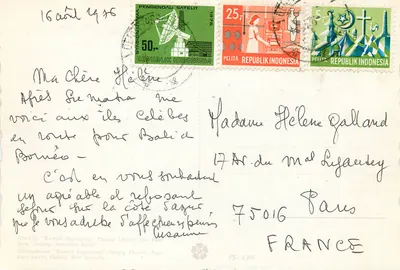 16 août 1976
PERHUBUNGAN SATELIT
50,-
REPUBLIK INDONESIA
25,-
PELITA REPUBLIK INDONESIA
PELITA REPUBLIK INDONESIA
Ma Chère Hélène
Après Sumatra me
voici aux îles Célèbes
en route pour Bali et
Bornéo -
C'est en vous souhaitant
un agréable et reposant
séjour sur la côte d'azur
que je vous adresse d'affectueuses pensées
Susanne
Madame Hélène Galland
17 Av. du Mal Lyautey
75016 Paris
FRANCE